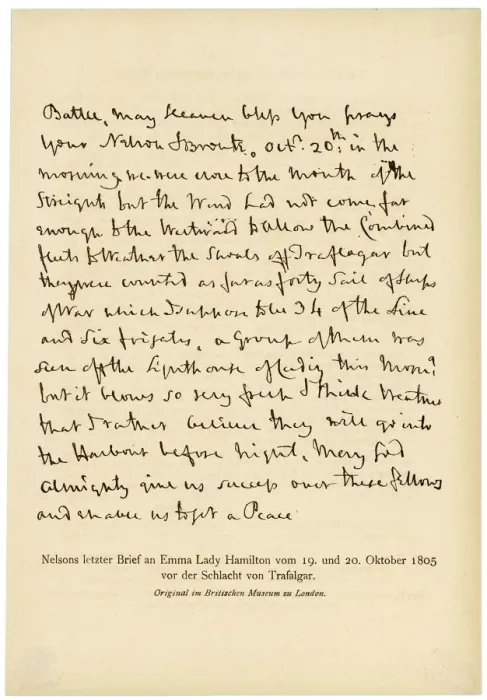 Battle, may Heaven bless you prays
your Nelson & Bronte. Octr. 20th in the
morning we were close to the mouth of the
Streights but the Wind had not come far
enough to the Westward to allow the Combined
fleets to Weather the Shoals off Traflagar but
they were counted as far as forty Sail of Ships
of War which I suppose to be 34 of the Line
and Six frigates, a Group of them was
seen off the Lighthouse of Cadiz this Morng
but it blows so very fresh I think Weather
that I rather believe they will go into
the Harbour before night, May God
Almighty give us success over these fellows
and enable us to get a Peace
Nelsons letzter Brief an Emma Lady Hamilton vom 19. und 20. Oktober 1805
vor der Schlacht von Trafalgar.
Original im Britischen Museum zu London.